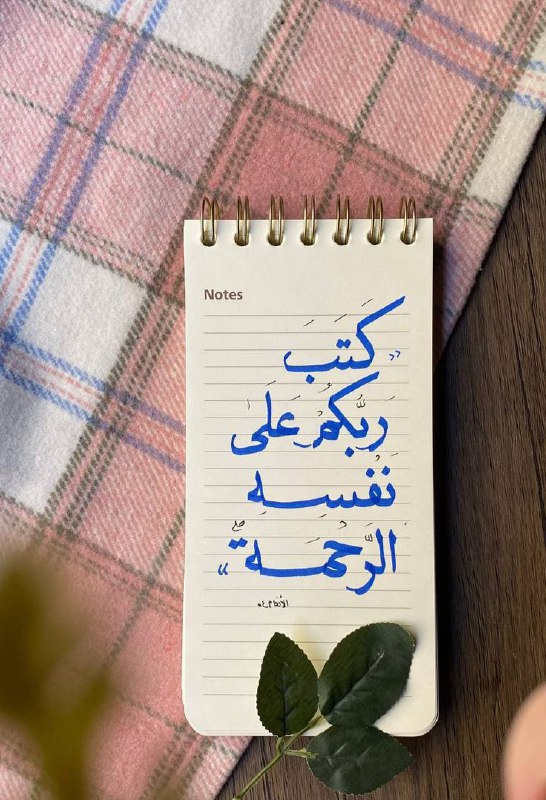 Notes
«كَتَبَ
رَبُّكُمْ عَلَىٰ
نَفْسِهِ
الرَّحْمَةَ ۖ»
الأنعام ٥٤